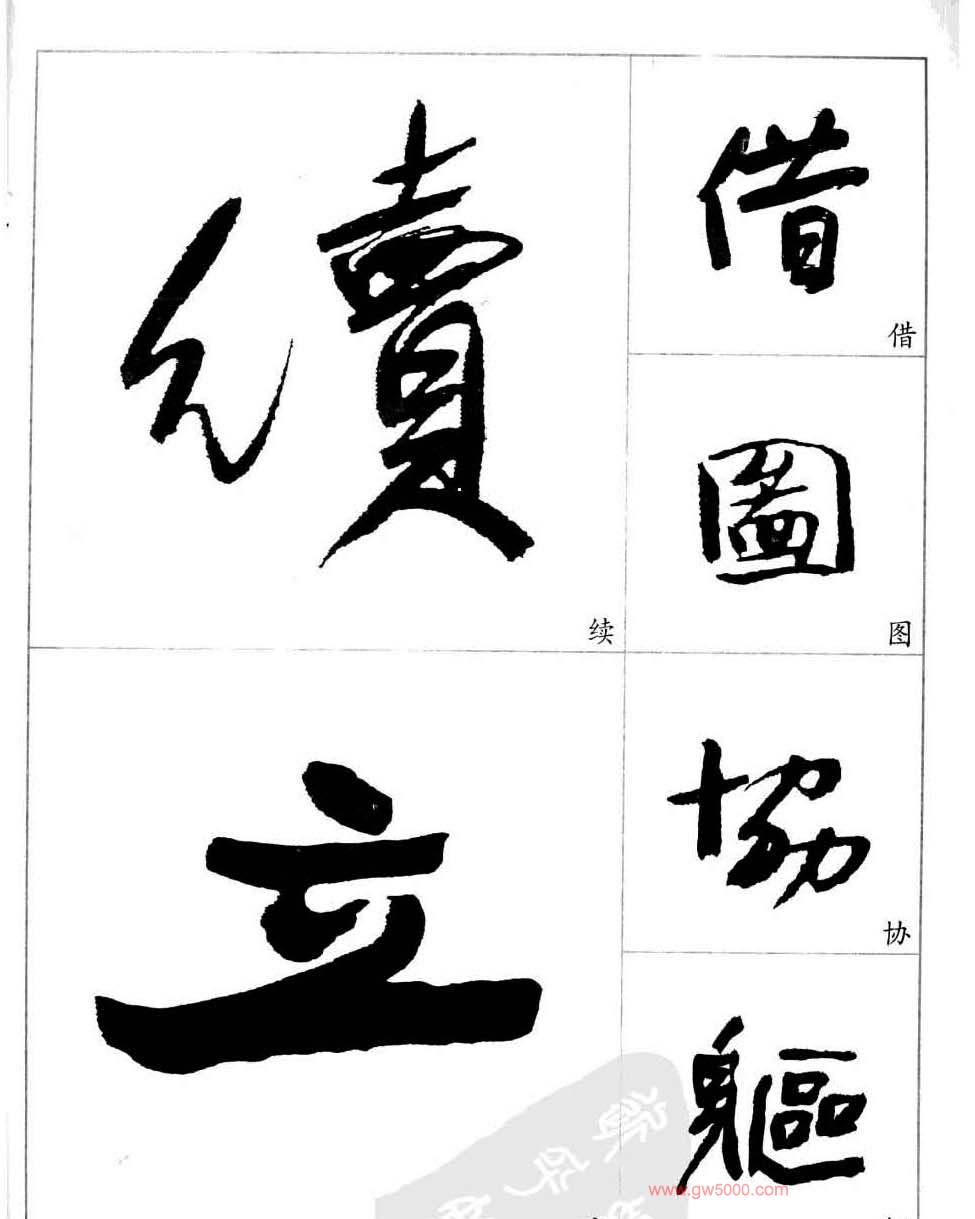 借
借
圖
图
協
协
軀
續
续
立
www.gw5000.com